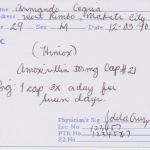 Name Armando Cequia
West Rembo, Makati City
29 Sex M Date 12-03-90
(Himox)
Amoxicillin 500mg Cap #21
Sig: 1 cap 3x a day for
seven days.
Physician's Sig
Lic No 123457
PTR No 1234567
S2 No